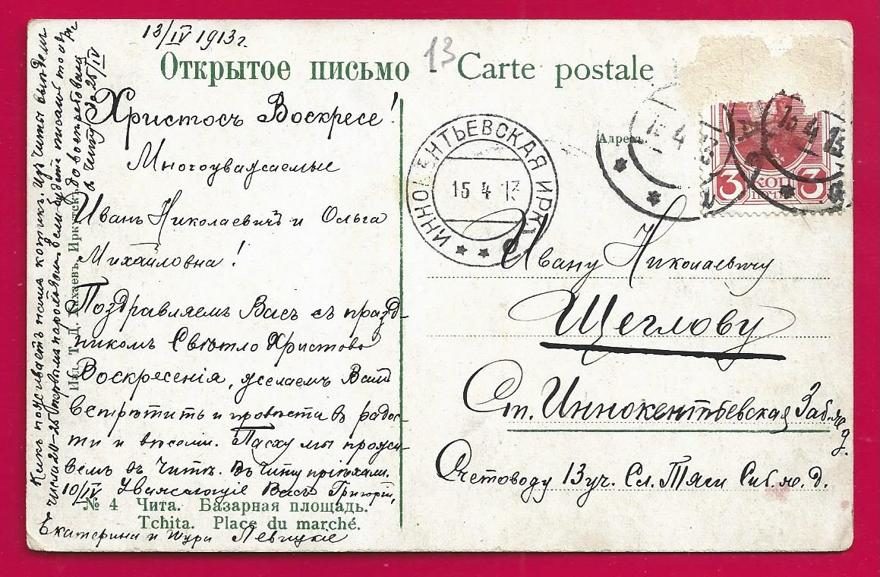 13/IV 1913 г.
13
Открытое письмо Carte postale
Христосъ Воскресе!
Многоуважаемые
Иванъ Николаевичъ и Ольга
Михайловна!
Поздравляемъ Васъ съ празд-
никомъ Свѣтло Христова
Воскресенія, желаемъ Вамъ
встрѣтить и провести въ радос-
ти и веселіи. Пасху мы прожи-
вемъ въ Читѣ. Въ Читу пріѣхали
10/IV Уважающіе Васъ Григорій,
Екатерина и Шура Левицкіе
Какъ поживаетъ нашъ котикъ. Изъ Читы выѣдемъ
числа 20-25
до востребованія
въ Читу до 25/IV
№ 4 Чита. Базарная площадь.
Tchita. Place du marché.
Иркутскъ
ИННОКЕНТЬЕВСКАЯ ИРК.
15 4 13
Адресъ
15 4 13
3 КОП 3
Ивану Николаевичу
Щеглову
Ст. Иннокентьевская Заб. ж. д.
Счетоводу 13 уч. Сл. Тяги Сиб. ж. д.